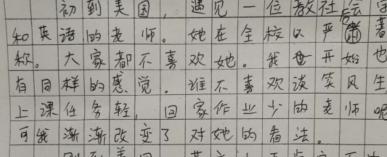 初到美国，遇见一位教社会学
和英语的老师。她在全校以严肃著
称。大家都不喜欢她。我也开始也
有同样的感觉。谁不喜欢谈笑风生
上课任务轻，回家作业少的老师呢
可我渐渐改变了对她的看法。